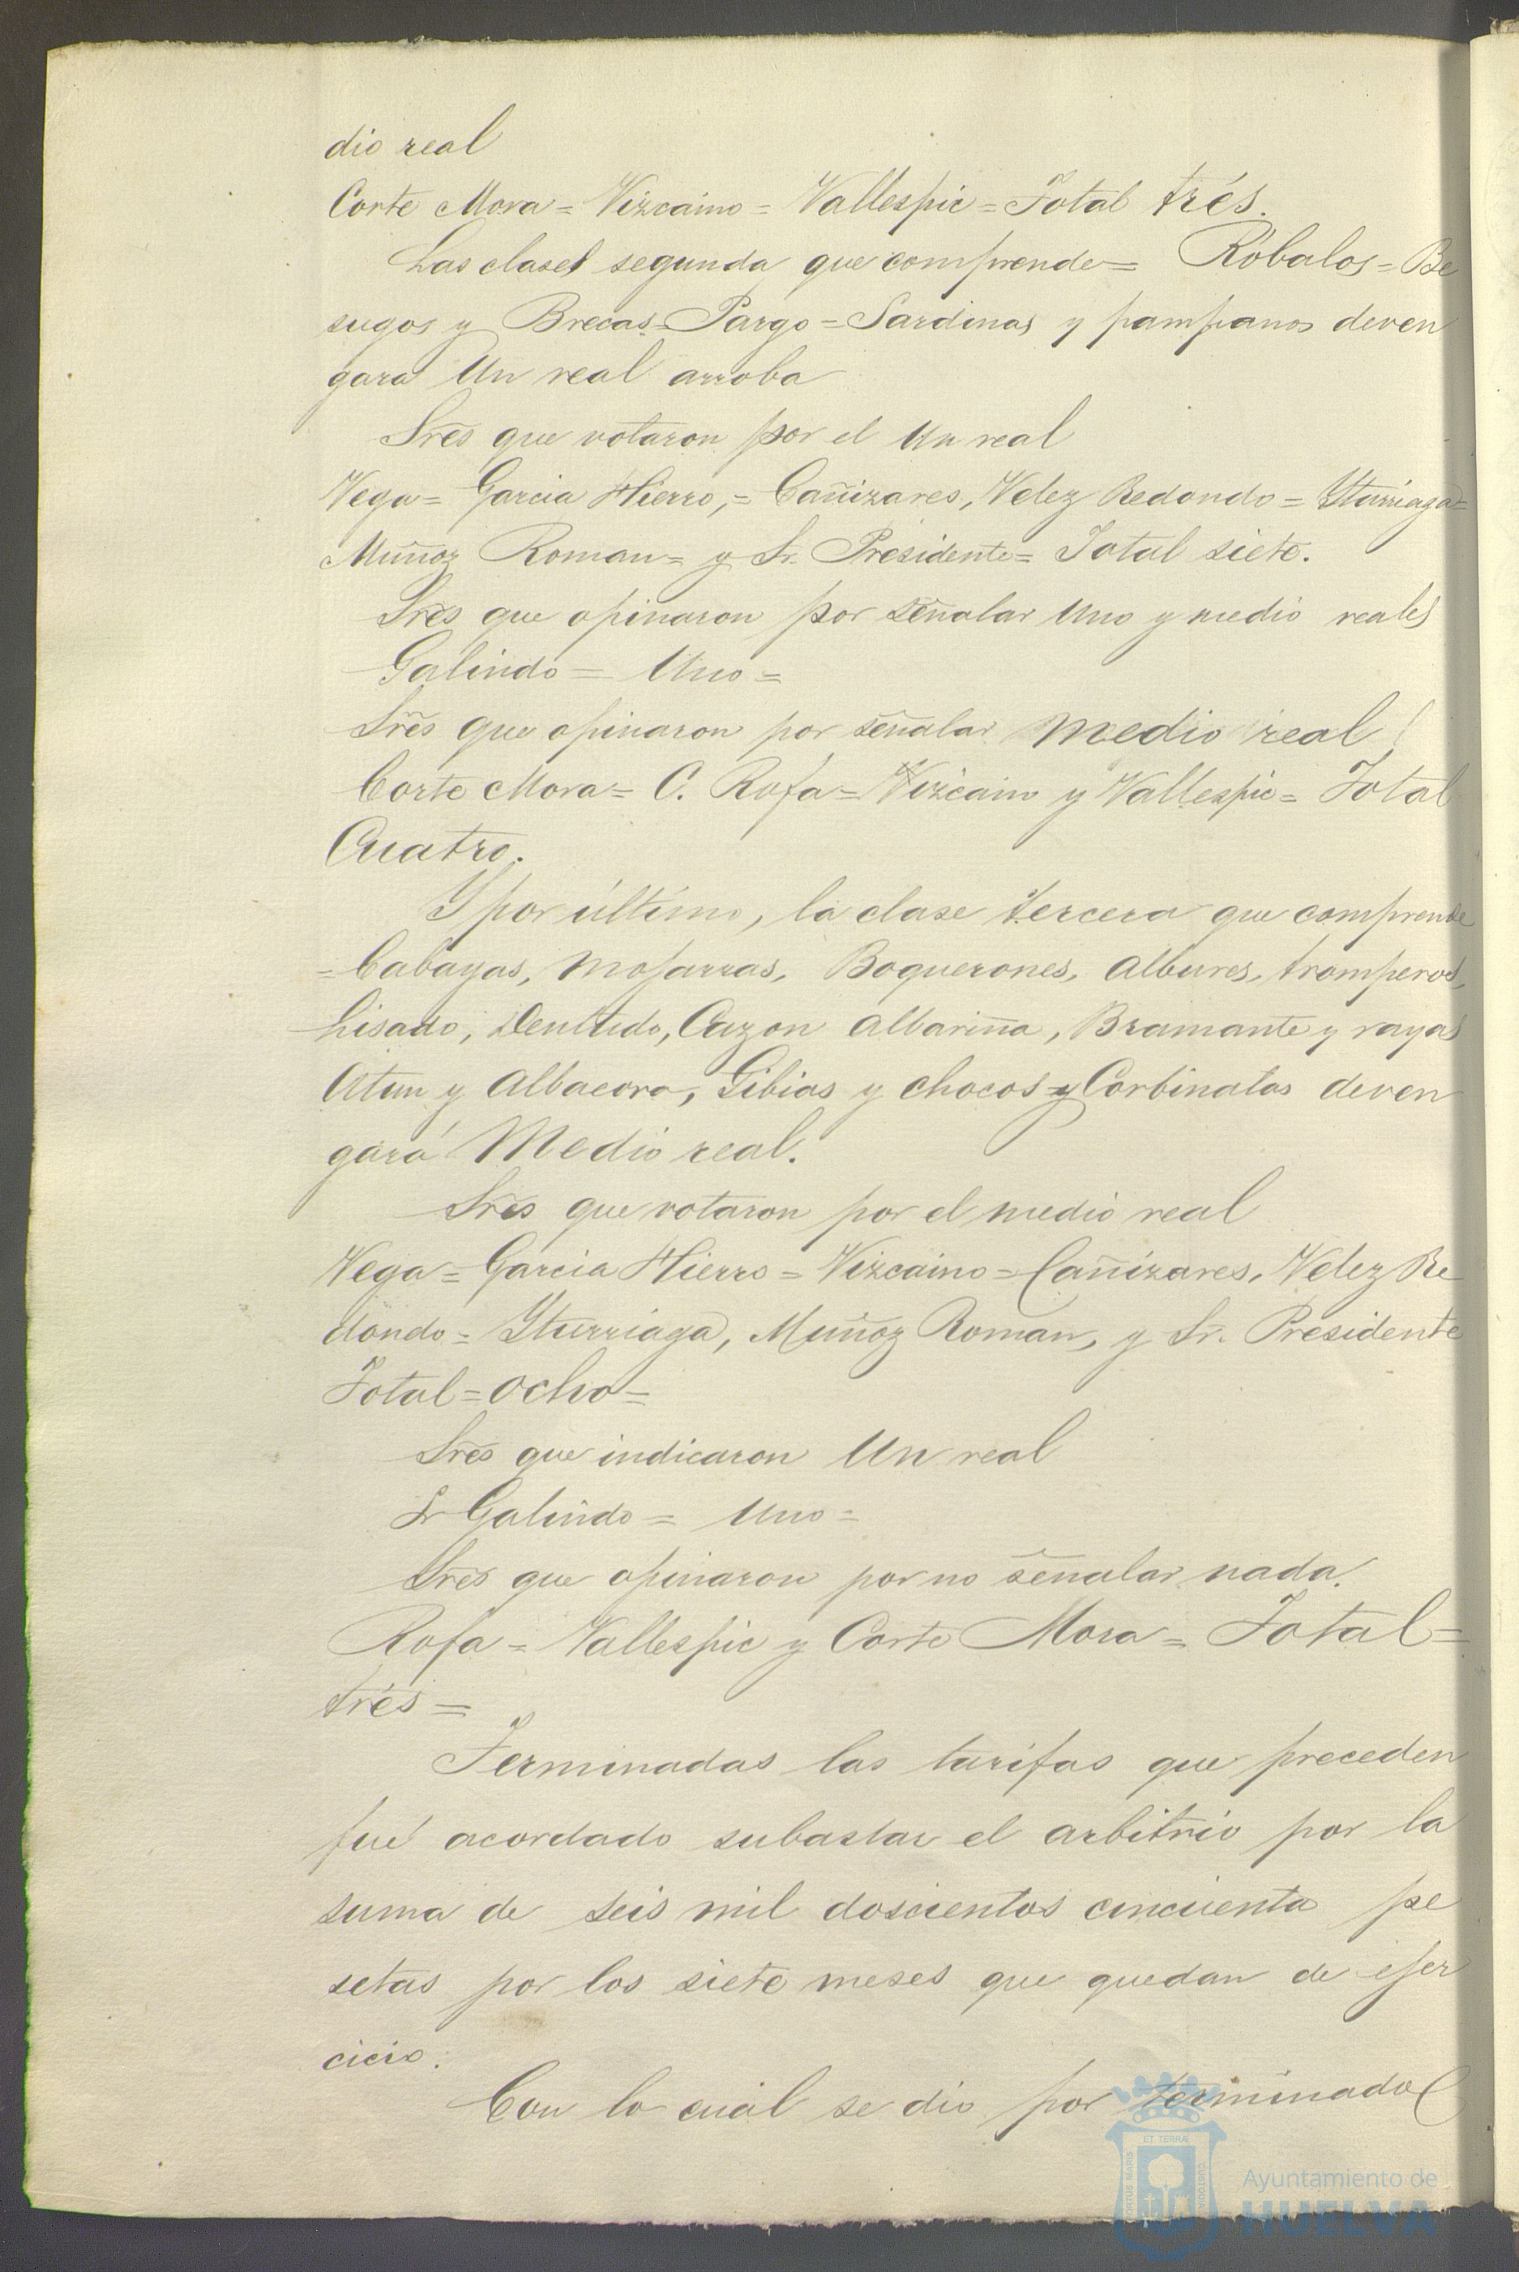 dio real
Corte Mora = Vizcaino = Vallespic = Total trés.
Las clases segunda que comprende = Róbalos = Be
sugos y Brecas = Pargo = Sardinas y pampanos deven
gara Un real arroba
Sres que votaron por el Un real
Vega = Garcia Hierro, = Cañizares, Velez Redondo = Yturriaga =
Muñoz Roman = y Sr. Presidente = Total siete.
Sres que opinaron por señalar Uno y medio reales
Galindo = Uno =
Sres que opinaron por señalar medio real
Corte Mora = C. Rofa = Vizcaino y Vallespic = Total
Cuatro.
Y por último, la clase tercera que comprende
= Cabayas, mojarras, Boquerones, Albures, tromperos,
Lisado, Dentudo, Cazon albariña, Bramante y rayas
Atun y Albacora, Gibias y chocos y Corbinatas deven
gará Medio real.
Sres que votaron por el medio real
Vega = Garcia Hierro = Vizcaino = Cañizares, Velez Re
dondo = Yturriaga, Muñoz Roman, y Sr. Presidente
Total = Ocho =
Sres que indicaron Un real
Sr Galindo = Uno =
Sres que opinaron por no señalar nada.
Rofa = Vallespic y Corte Mora = Total =
trés =
Terminadas las tarifas que preceden
fué acordado subastar el arbitrio por la
suma de seis mil doscientos cincuenta pe
setas por los siete meses que quedan de ejer
cicio.
Con lo cual se dio por terminado
ET TERRÆ
PORTUS MARIS
CUSTODIA
Ayuntamiento de
HUELVA